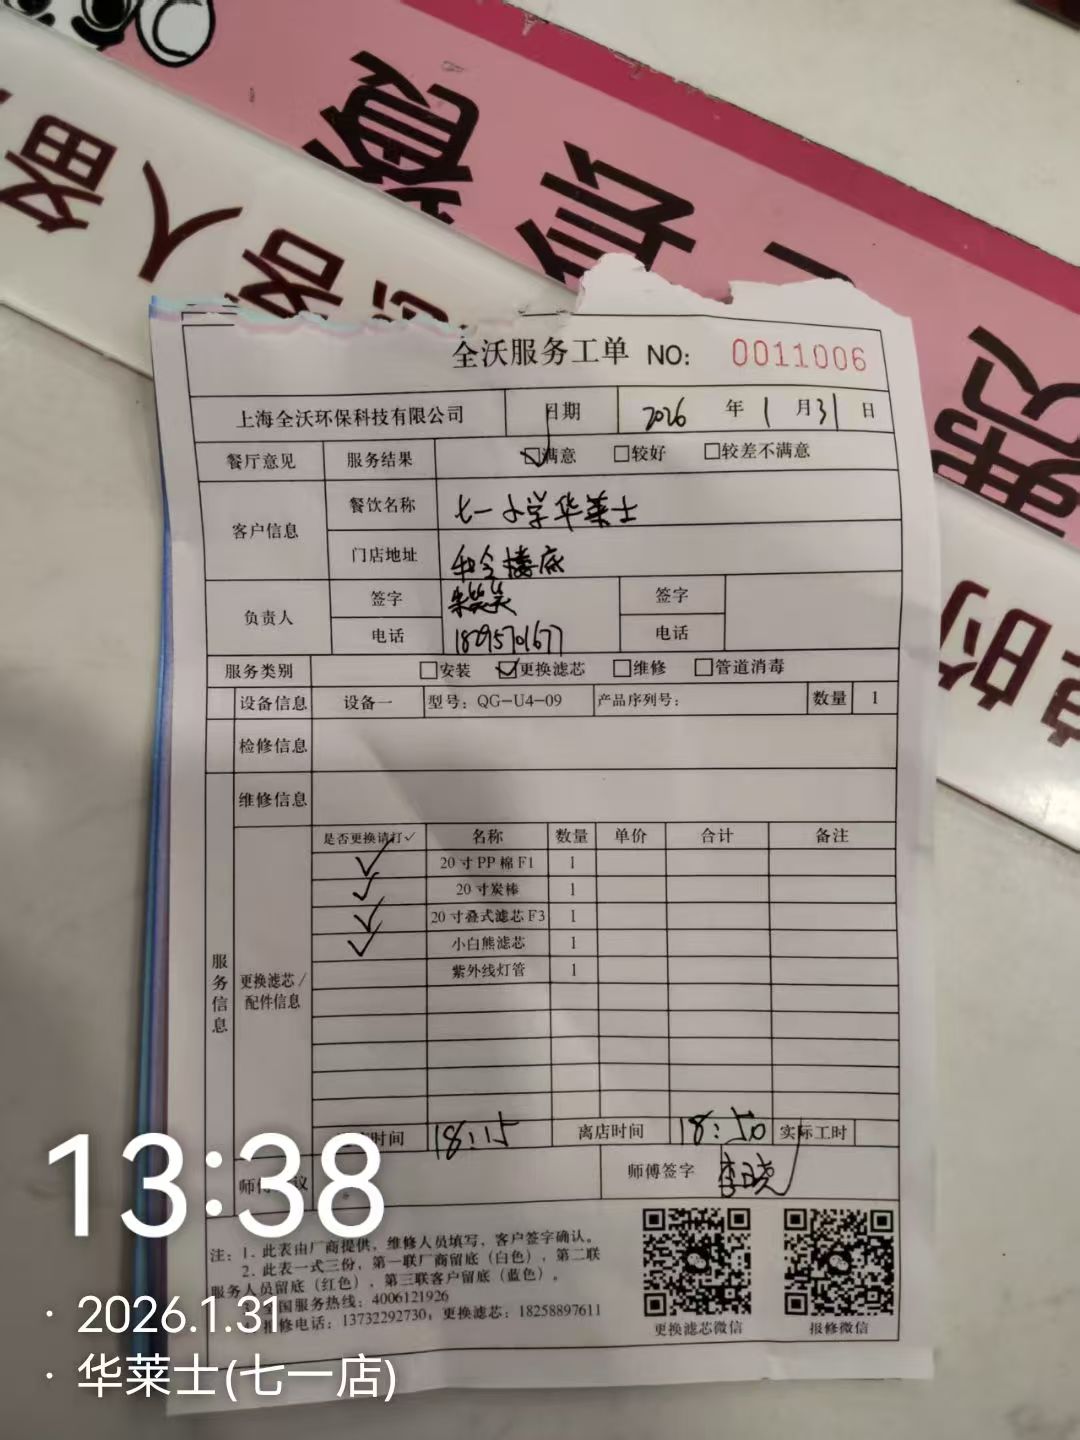 客人备
全沃服务工单 NO: 0011006
上海全沃环保科技有限公司 日期 2026 年 1 月 31 日
餐厅意见 服务结果 ☑满意 □较好 □较差不满意
客户信息 餐饮名称 七一小学华莱士
门店地址 和全楼底
负责人 签字 朱笑笑 签字
电话 18295701677 电话
服务类别 □安装 ☑更换滤芯 □维修 □管道消毒
设备信息 设备一 型号：QG-U4-09 产品序列号： 数量 1
检修信息
维修信息
服务信息
更换滤芯/配件信息
是否更换请打✓ 名称 数量 单价 合计 备注
✓ 20寸PP棉F1 1
✓ 20寸炭棒 1
✓ 20寸叠式滤芯F3 1
✓ 小白熊滤芯 1
紫外线灯管 1
时间 18:15 离店时间 18:50 实际工时
师傅 议 师傅签字
注：1. 此表由厂商提供，维修人员填写，客户签字确认。
2. 此表一式三份，第一联厂商留底（白色），第二联
服务人员留底（红色），第三联客户留底（蓝色）。
全国服务热线：4006121926
报修电话：13732292730；更换滤芯：18258897611
更换滤芯微信 报修微信
13:38
· 2026.1.31
· 华莱士(七一店)